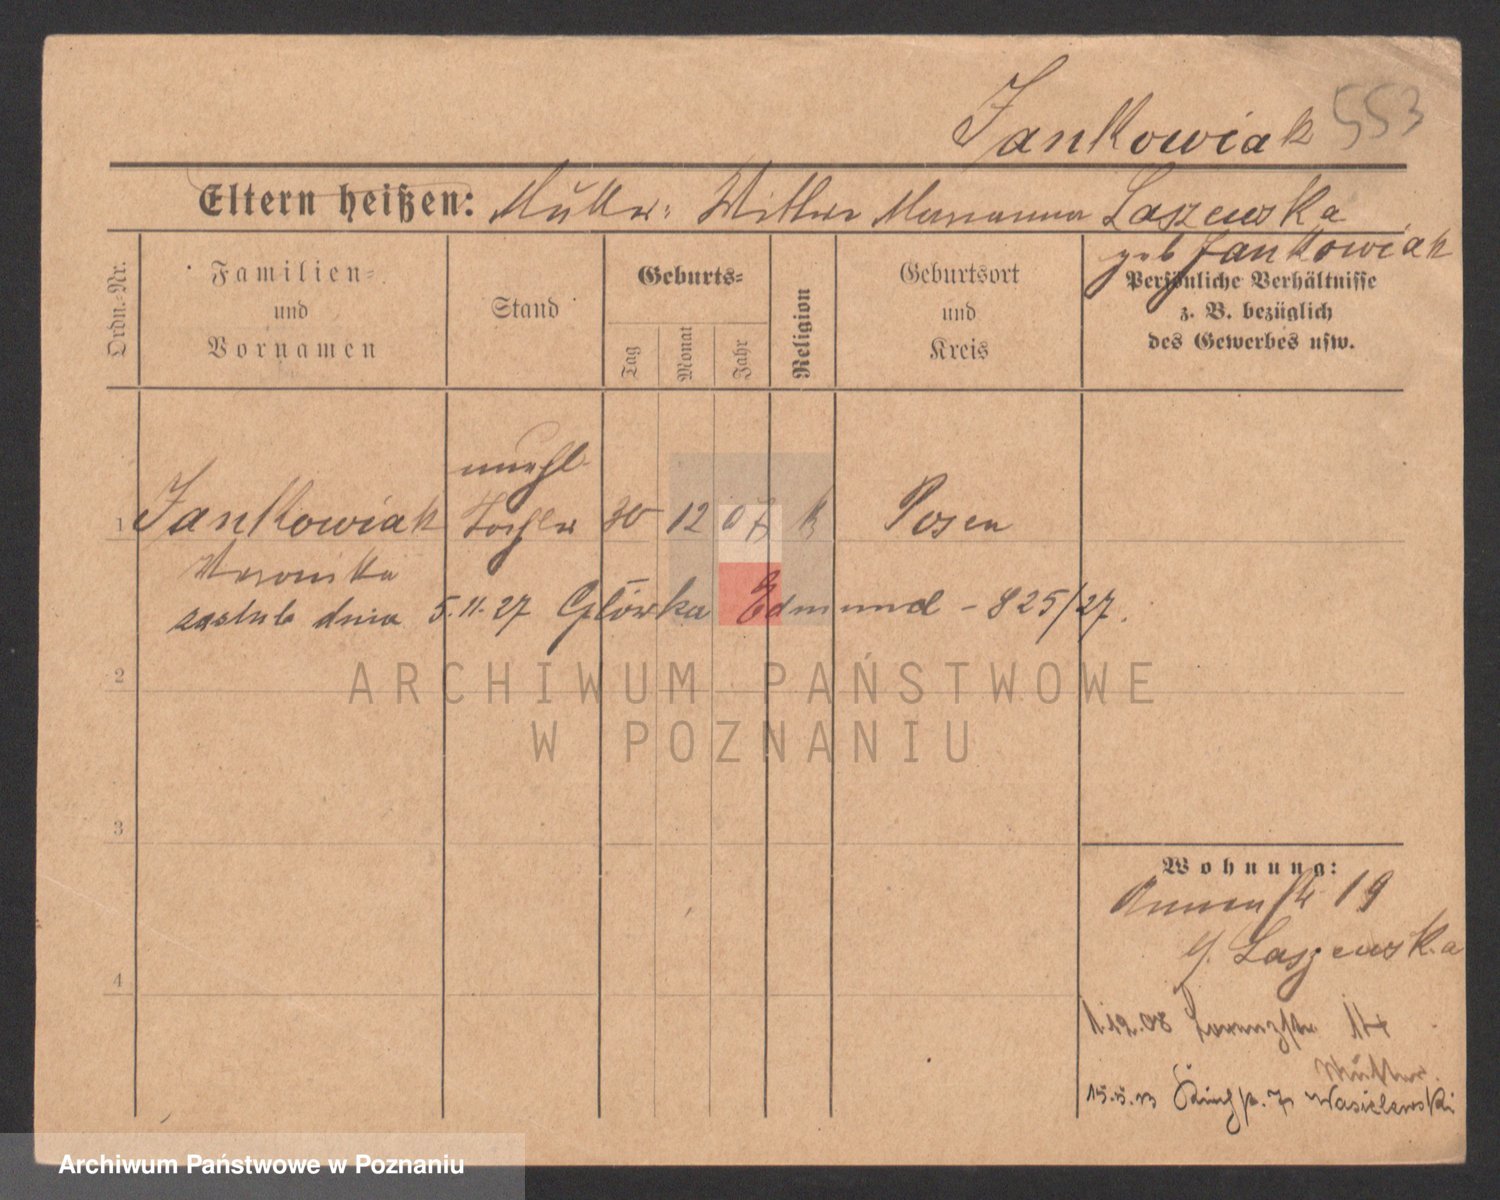 Jankowiak 553
Eltern heißen: Mutter: Witwe Marianna Laszewska
geb Jankowiak
Ordn.-Nr.
Familien-
und
Vornamen
Stand
Geburts-
Tag
Monat
Jahr
Religion
Geburtsort
und
Kreis
Persönliche Verhältnisse
z. B. bezüglich
des Gewerbes usw.
unehl
1 Jankowiak Tochter 30 12 07 k Posen
Veronika
zaślub dnia 5.11.27 Główka Edmund - 825/27.
2
3
4
Wohnung:
Annenstr 19
b/ Laszewska
1.12.08 Lorenzstr 14
Mutter
15.5.13 7 Wasielewski
ARCHIWUM PAŃSTWOWE
W POZNANIU
Archiwum Państwowe w Poznaniu